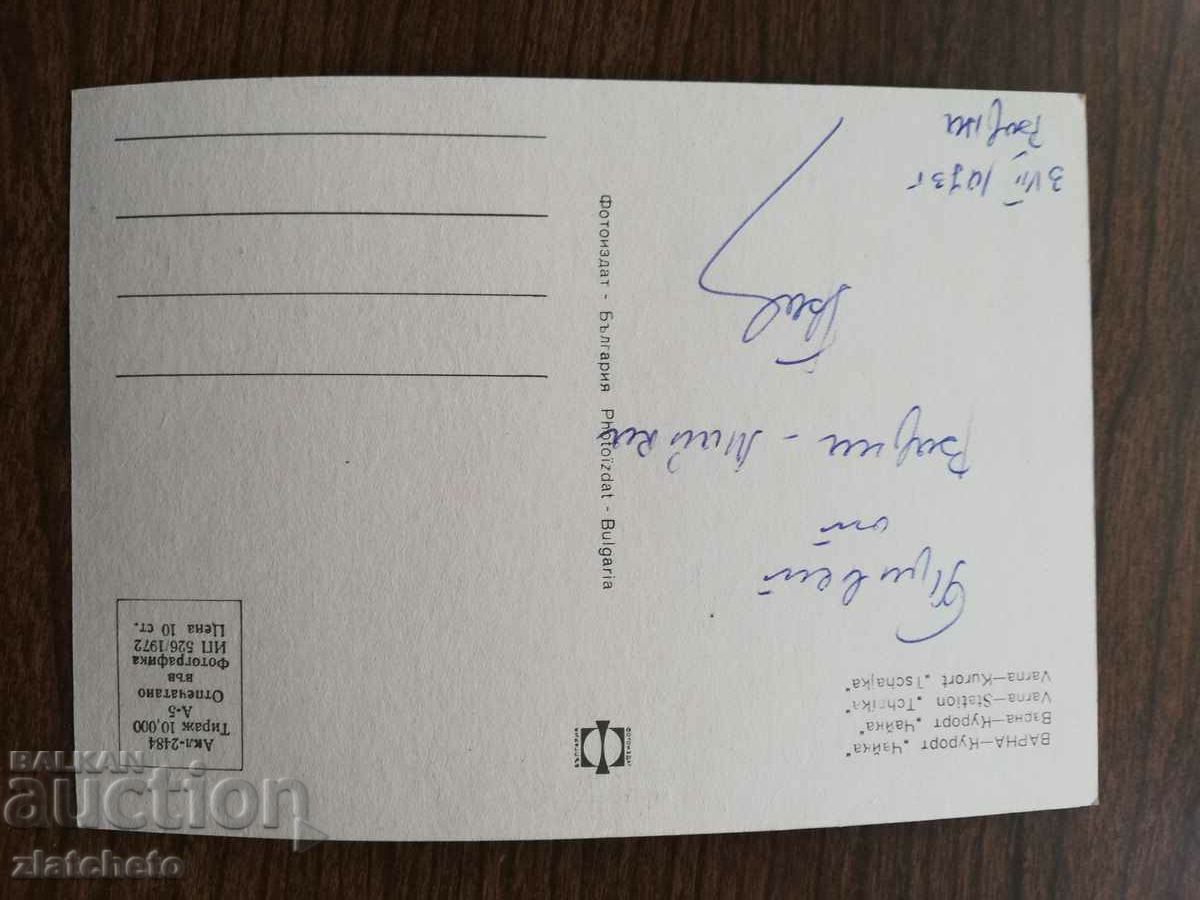 ВАРНА—Курорт „Чайка“
Варна—Курорт „Чайка“
Varna—Station „Tchaika“
Varna—Kurort „Tschajka“
Привет
от
Варна -
3 VII 1973 г
Варна
Фотоиздат - България Photoizdat - Bulgaria
Акл-2484
Тираж 10,000
А-5
Отпечатано
във
Фотографика
ИП 526/1972
Цена 10 ст.
BALKAN
auction
zlatcheto